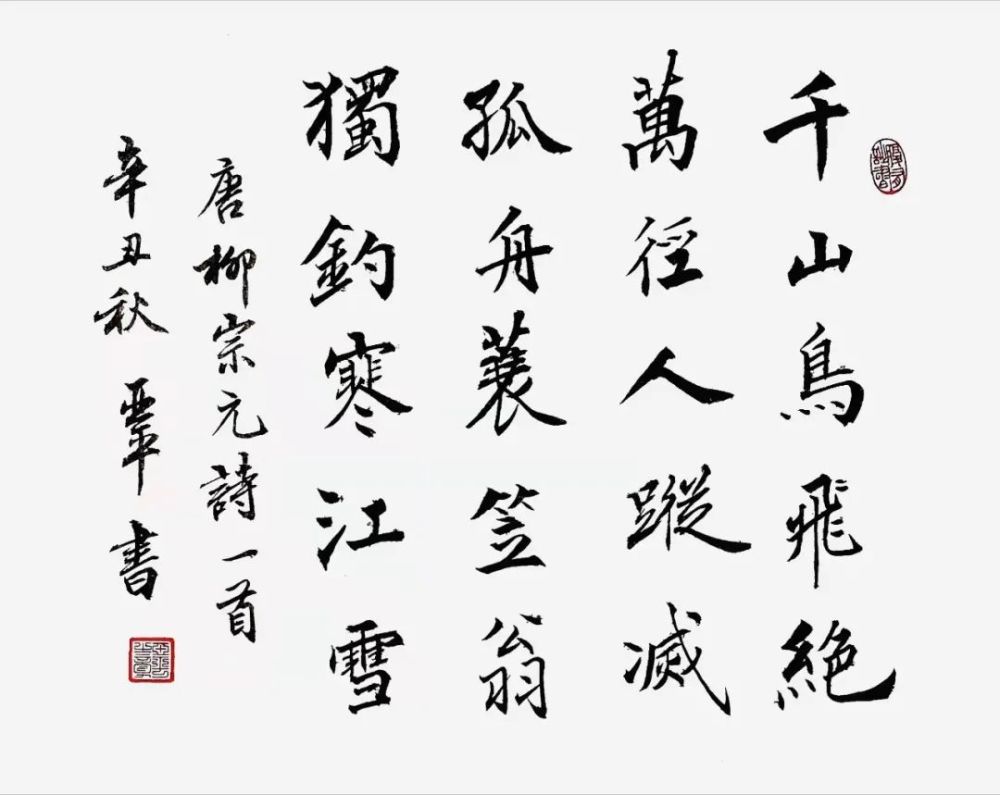 千山鳥飛絕
萬徑人蹤滅
孤舟蓑笠翁
獨釣寒江雪
唐柳宗元詩一首
辛丑秋 書